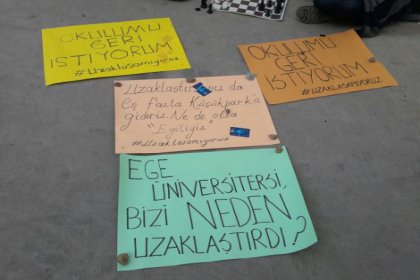 OKULUMU
GERİ
İSTİYORUM
#Uzaklaşamıyoruz
OKULUMU
GERİ
İSTİYORUM
#UZAKLAŞAMIYORUZ
Uzaklaştırsanız da
En fazla Küçükpark'a
gideriz Ne de olsa
"Egeliyiz"
#Uzaklaşamıyoruz
EGE
ÜNİVERSİTERSİ,
BİZİ NEDEN
UZAKLAŞTIRDI?